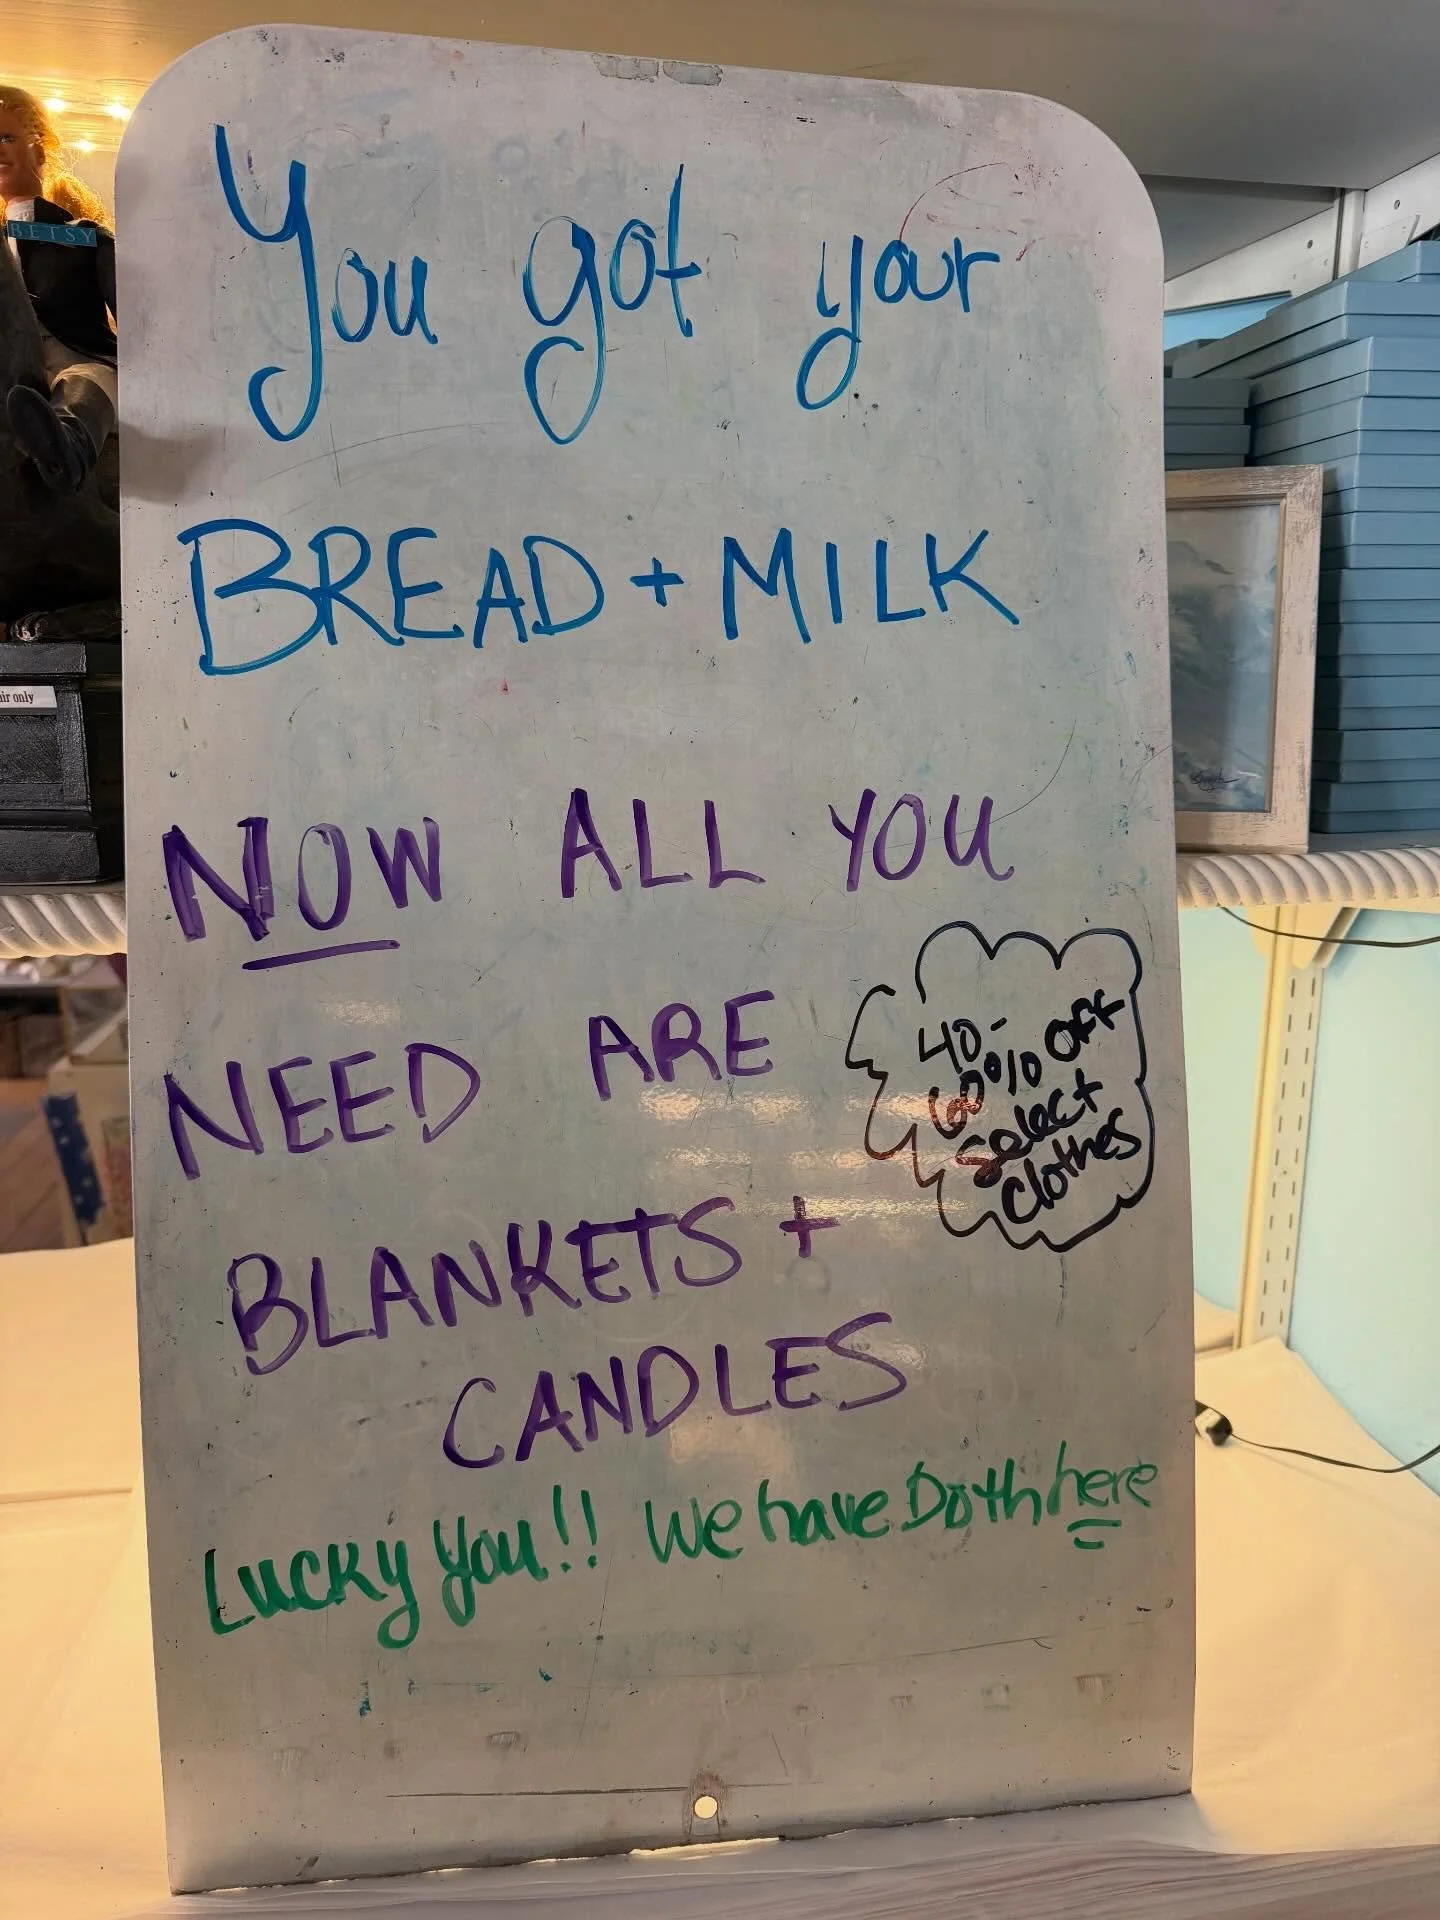 BETSY
air only
You got your
BREAD + MILK
NOW ALL YOU
NEED ARE
BLANKETS +
CANDLES
40-
60% OFF
Select
Clothes
Lucky You!! We have Doth here